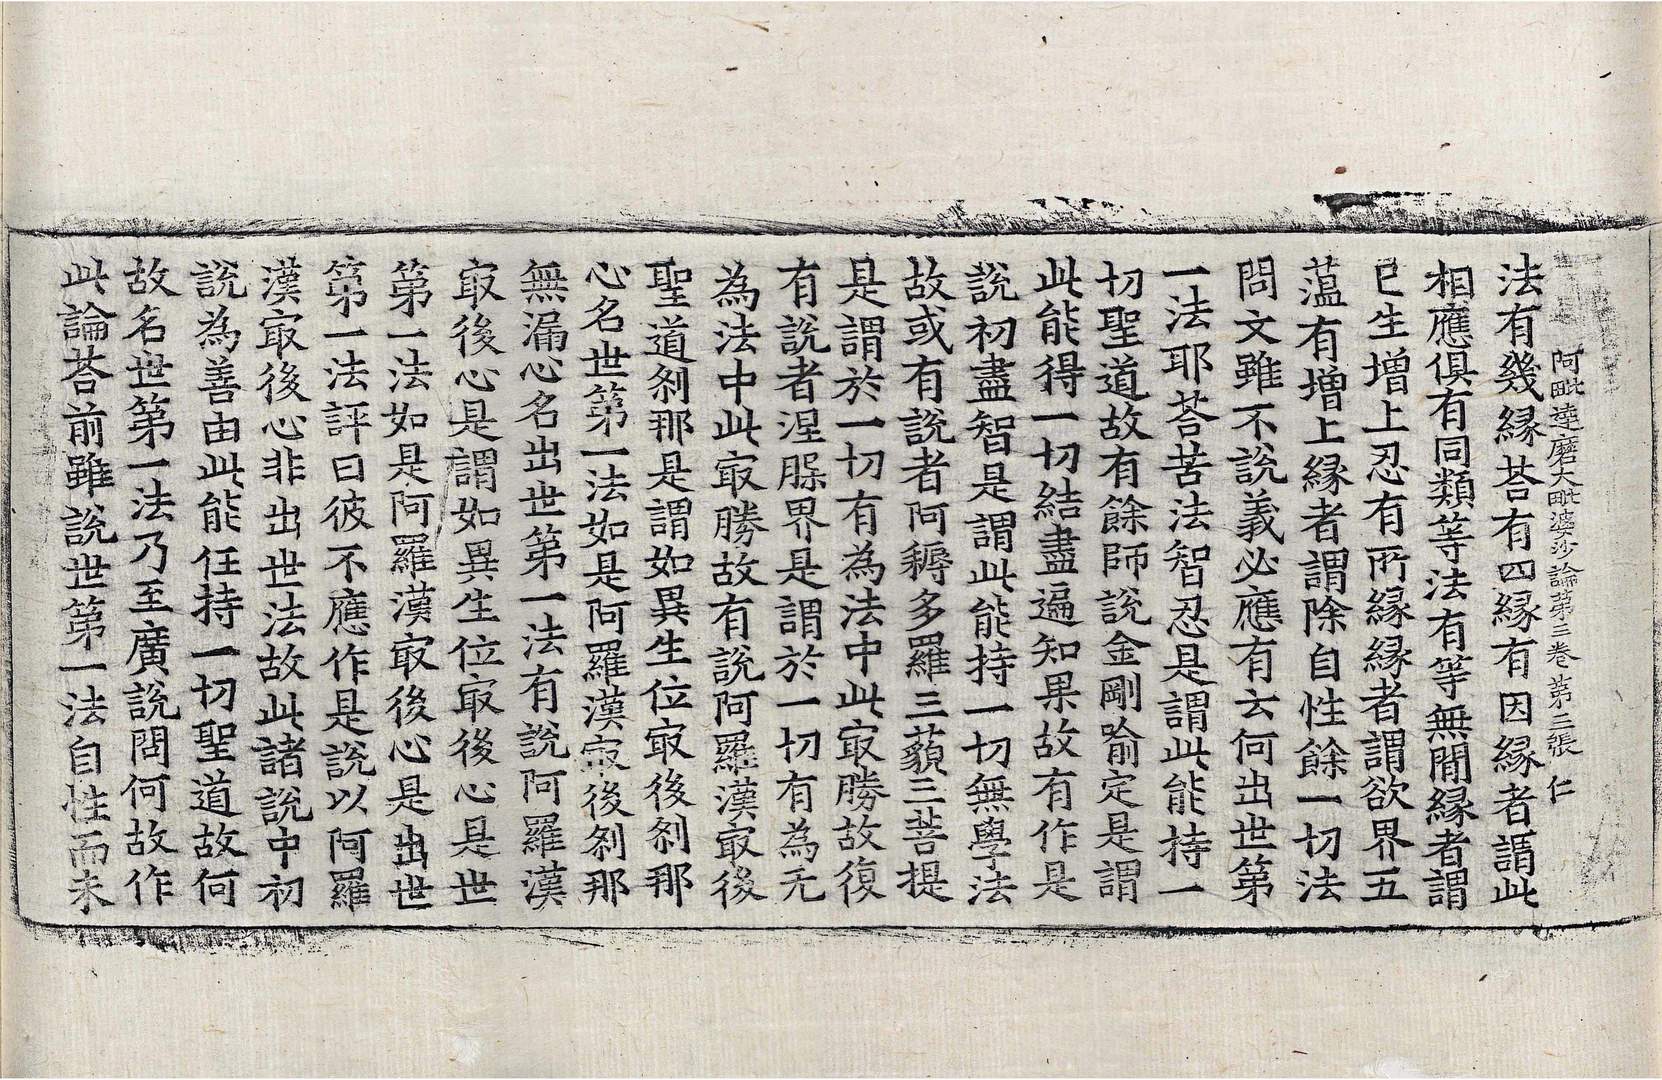 阿毗達磨大毗婆沙論第三卷 第三張 仁
法有幾緣荅有四緣有因緣者謂此
相應俱有同類等法有等無間緣者謂
已生增上忍有所緣緣者謂欲界五
薀有增上緣者謂除自性餘一切法
問文雖不說義必應有云何出世第
一法耶荅苦法智忍是謂此能持一
切聖道故有餘師說金剛喻定是謂
此能得一切結盡遍知果故有作是
說初盡智是謂此能持一切無學法
故或有說者阿耨多羅三藐三菩提
是謂於一切有為法中此㝡勝故復
有說者涅槃界是謂於一切有為无
為法中此㝡勝故有說阿羅漢㝡後
聖道剎那是謂如異生位㝡後剎那
心名世第一法如是阿羅漢㝡後剎那
無漏心名出世第一法有說阿羅漢
㝡後心是謂如異生位㝡後心是世
第一法如是阿羅漢㝡後心是出世
第一法評曰彼不應作是說以阿羅
漢㝡後心非出世法故此諸說中初
說為善由此能任持一切聖道故何
故名世第一法乃至廣說問何故作
此論荅前雖說世第一法自性而未